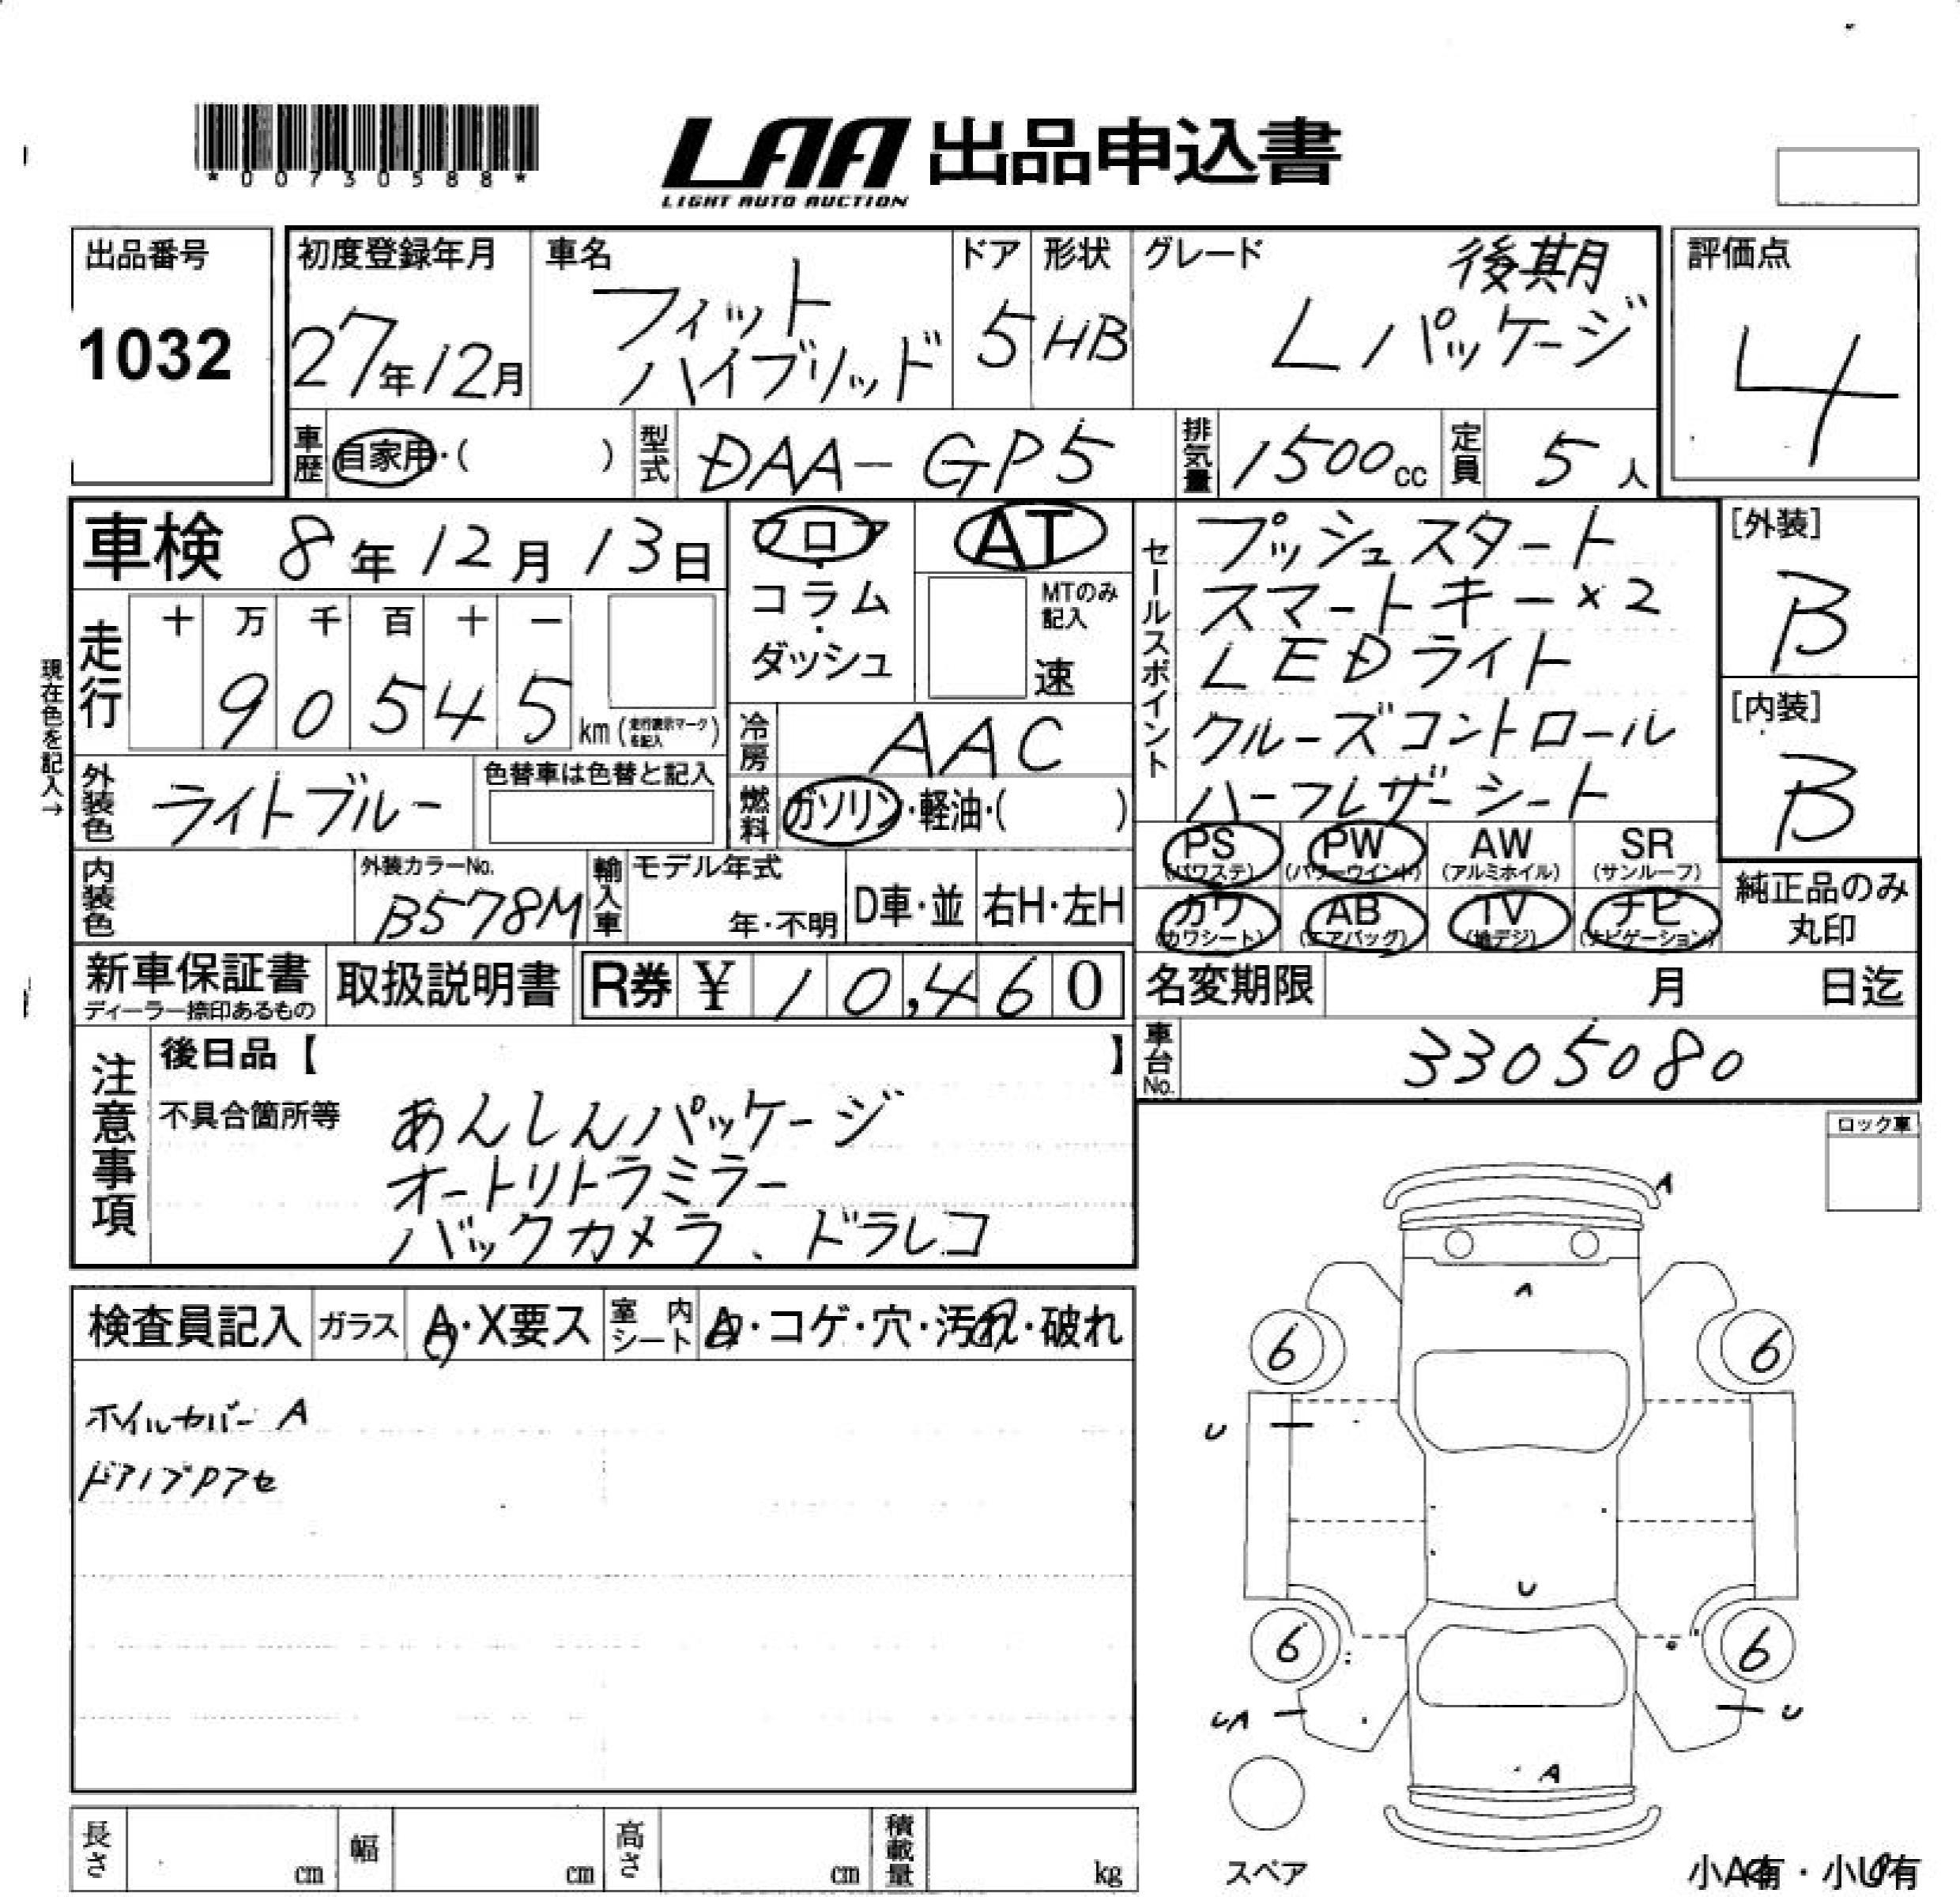 *00730588*
LAA 出品申込書
LIGHT AUTO AUCTION
出品番号
1032
初度登録年月
27年12月
車名
フィット
ハイブリッド
ドア
5
形状
HB
グレード
後期
Lパッケージ
評価点
4
車歴
自家用・( )
型式
DAA-GP5
排気量
1500cc
定員
5人
車検 8年12月13日
フロア
コラム
・
ダッシュ
AT
MTのみ
記入
速
セールスポイント
プッシュスタート
スマートキー×2
LEDライト
クルーズコントロール
ハーフレザーシート
[外装]
B
[内装]
B
現在色を記入→
走行
十 万 千 百 十 一
9 0 5 4 5 km (走行表示マークを記入)
冷房
AAC
外装色
ライトブルー
色替車は色替と記入
燃料
ガソリン・軽油・( )
PS
(パワステ)
PW
(パワーウインド)
AW
(アルミホイル)
SR
(サンルーフ)
カワ
(カワシート)
AB
(エアバッグ)
TV
(地デジ)
ナビ
(ナビゲーション)
純正品のみ
丸印
内装色
外装カラーNo.
B578M
輸入車
モデル年式
年・不明
D車・並
右H・左H
新車保証書
ディーラー捺印あるもの
取扱説明書
R券 ¥ 10,460
名変期限 月 日迄
車台No.
3305080
注意事項
後日品【 】
不具合箇所等
あんしんパッケージ
オートリトラミラー
バックカメラ、ドラレコ
ロック車
検査員記入
ガラス
A・X要ス
室内シート
A・コゲ・穴・汚れ・破れ
ホイルカバーA
ドアノブPアセ
A
A
6
6
U
U
6
6
UA
U
A
スペア
小A有・小U有
長さ cm
幅 cm
高さ cm
積載量 kg